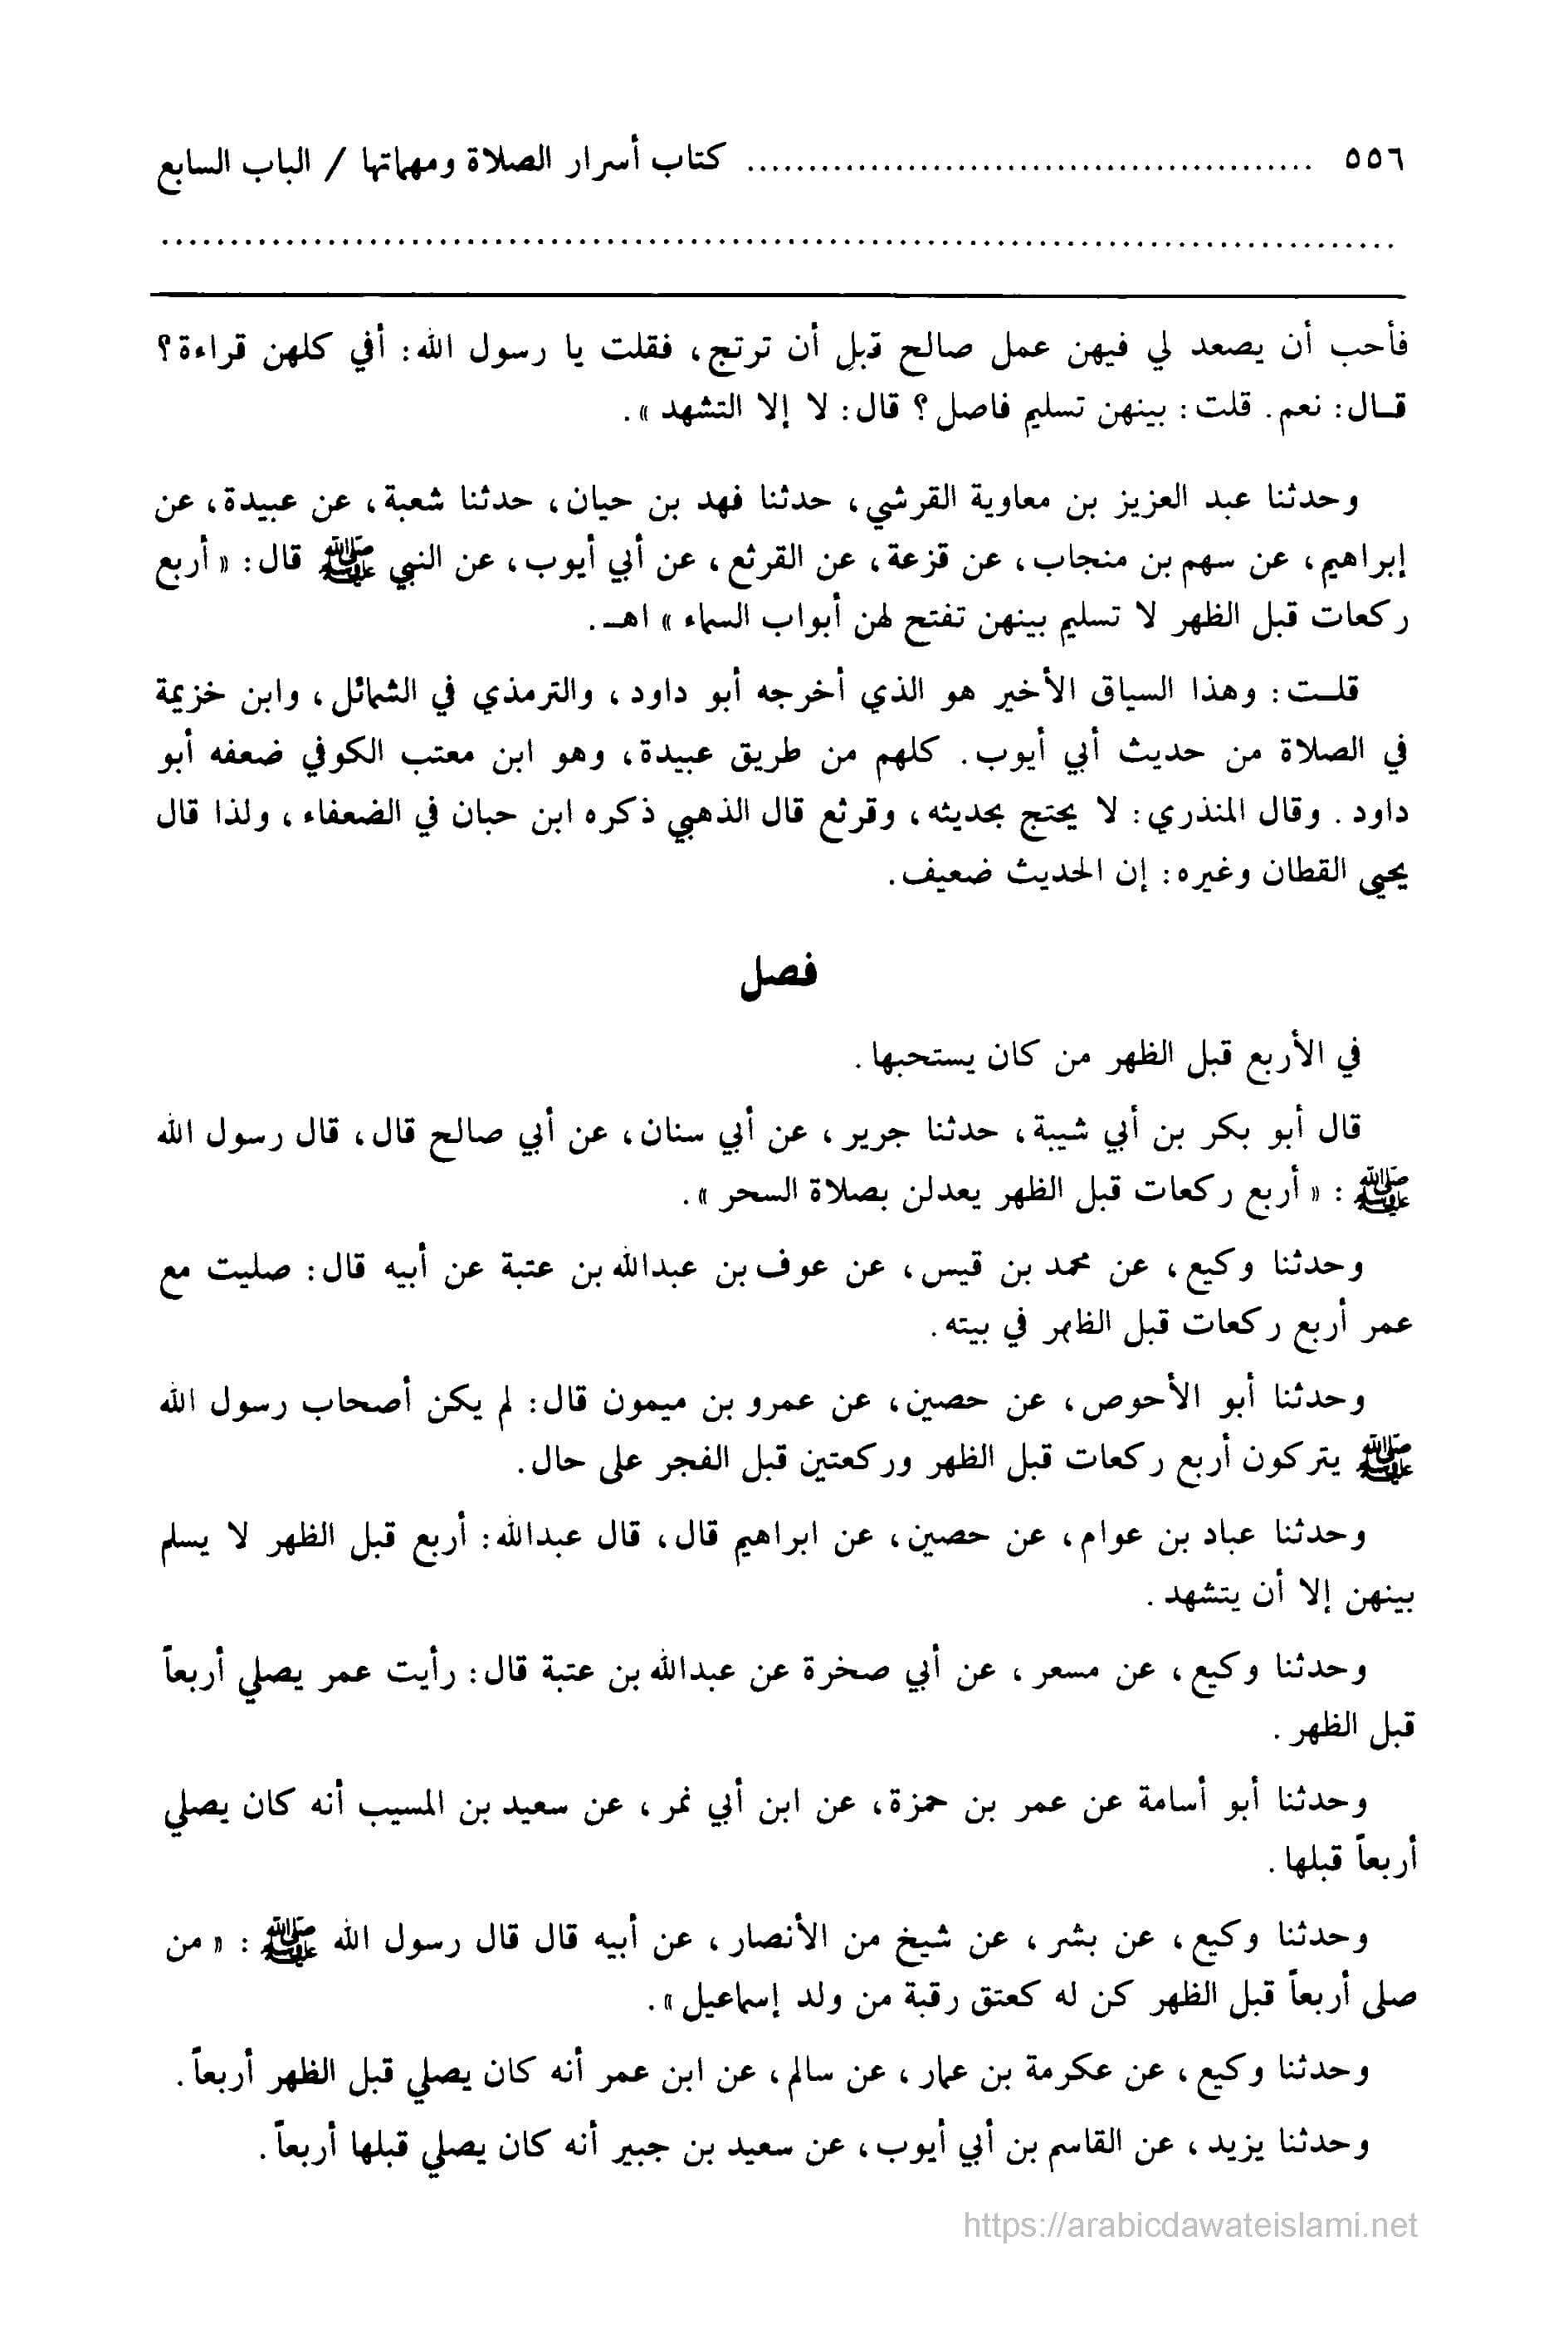 ٥٥٦ .............................................. كتاب أسرار الصلاة ومهماتها / الباب السابع
..........................................................................................
فأحب أن يصعد لي فيهن عمل صالح قبل أن ترتج، فقلت يا رسول الله: أفي كلهن قراءة؟
قـال: نعم. قلت: بينهن تسليم فاصل؟ قال: لا إلا التشهد».
وحدثنا عبد العزيز بن معاوية القرشي، حدثنا فهد بن حيان، حدثنا شعبة، عن عبيدة، عن
إبراهيم، عن سهم بن منجاب، عن قزعة، عن القرثع، عن أبي أيوب، عن النبي ﷺ قال: «أربع
ركعات قبل الظهر لا تسليم بينهن تفتح لهن أبواب السماء» اهـ.
قلـت: وهذا السياق الأخير هو الذي أخرجه أبو داود، والترمذي في الشمائل، وابن خزيمة
في الصلاة من حديث أبي أيوب. كلهم من طريق عبيدة، وهو ابن معتب الكوفي ضعفه أبو
داود. وقال المنذري: لا يحتج بحديثه، وقرثع قال الذهبي ذكره ابن حبان في الضعفاء، ولذا قال
يحيى القطان وغيره: إن الحديث ضعيف.
فصل
في الأربع قبل الظهر من كان يستحبها.
قال أبو بكر بن أبي شيبة، حدثنا جرير، عن أبي سنان، عن أبي صالح قال، قال رسول الله
ﷺ: «أربع ركعات قبل الظهر يعدلن بصلاة السحر».
وحدثنا وكيع، عن محمد بن قيس، عن عوف بن عبدالله بن عتبة عن أبيه قال: صليت مع
عمر أربع ركعات قبل الظهر في بيته.
وحدثنا أبو الأحوص، عن حصين، عن عمرو بن ميمون قال: لم يكن أصحاب رسول الله
ﷺ يتركون أربع ركعات قبل الظهر وركعتين قبل الفجر على حال.
وحدثنا عباد بن عوام، عن حصين، عن ابراهيم قال، قال عبدالله: أربع قبل الظهر لا يسلم
بينهن إلا أن يتشهد.
وحدثنا وكيع، عن مسعر، عن أبي صخرة عن عبدالله بن عتبة قال: رأيت عمر يصلي أربعاً
قبل الظهر.
وحدثنا أبو أسامة عن عمر بن حمزة، عن ابن أبي نمر، عن سعيد بن المسيب أنه كان يصلي
أربعاً قبلها.
وحدثنا وكيع، عن بشر، عن شيخ من الأنصار، عن أبيه قال قال رسول الله ﷺ: «من
صلى أربعاً قبل الظهر كن له كعتق رقبة من ولد إسماعيل».
وحدثنا وكيع، عن عكرمة بن عمار، عن سالم، عن ابن عمر أنه كان يصلي قبل الظهر أربعاً.
وحدثنا يزيد، عن القاسم بن أبي أيوب، عن سعيد بن جبير أنه كان يصلي قبلها أربعاً.
https://arabicdawateislami.net